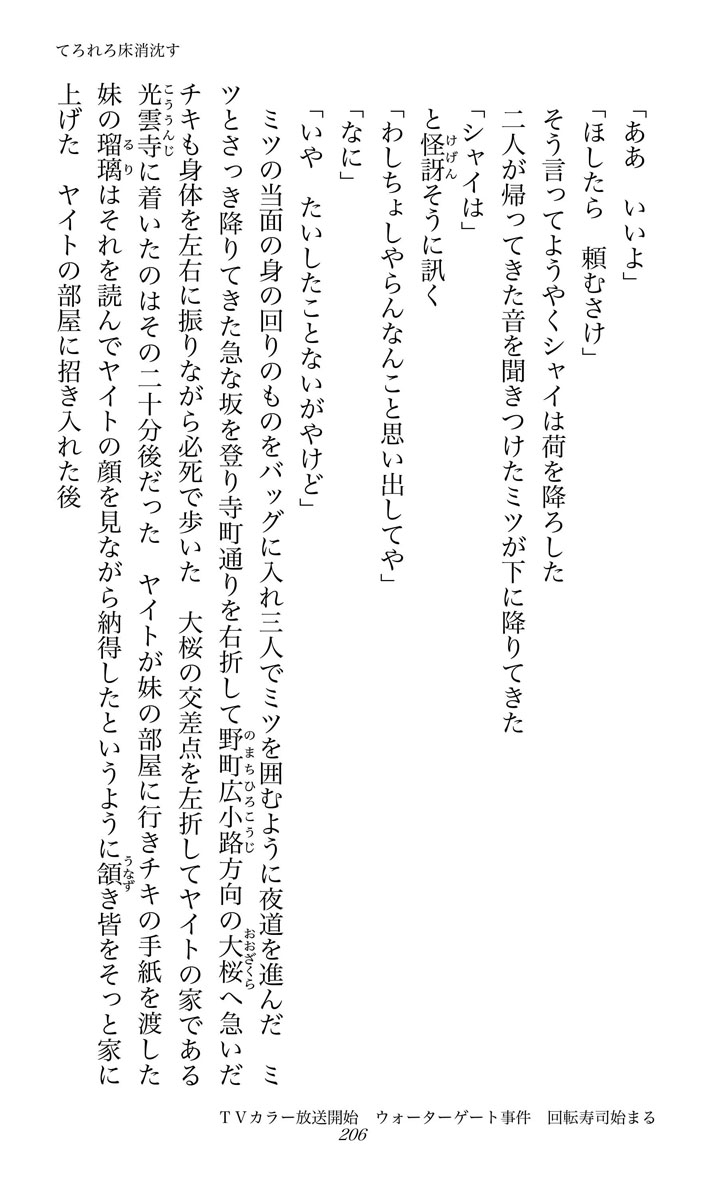 てろれろ床消沈す
「ああ　いいよ」
「ほしたら　頼むさけ」
そう言ってようやくシャイは荷を降ろした
二人が帰ってきた音を聞きつけたミツが下に降りてきた
「シャイは」
と怪訝そうに訊く
「わしちょしやらんなんこと思い出してや」
「なに」
「いや　たいしたことないがやけど」
ミツの当面の身の回りのものをバッグに入れ三人でミツを囲むように夜道を進んだ　ミ
ツとさっき降りてきた急な坂を登り寺町通りを右折して野町広小路方向の大桜へ急いだ
チキも身体を左右に振りながら必死で歩いた　大桜の交差点を左折してヤイトの家である
光雲寺に着いたのはその二十分後だった　ヤイトが妹の部屋に行きチキの手紙を渡した
妹の瑠璃はそれを読んでヤイトの顔を見ながら納得したというように頷き皆をそっと家に
上げた　ヤイトの部屋に招き入れた後
けげん
のまちひろこうじ
おおざくら
こううんじ
るり
うなず
ＴＶカラー放送開始　ウォーターゲート事件　回転寿司始まる
206